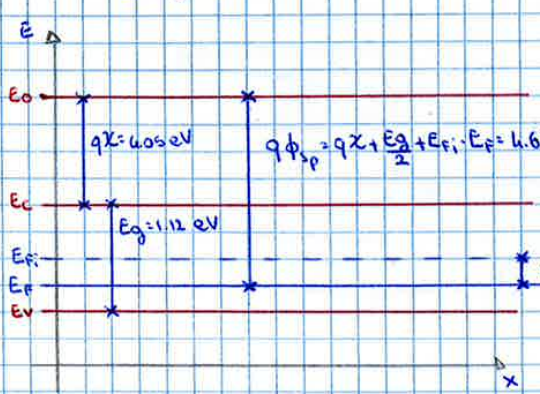 E
E0
qχ=4.05eV
qϕsp=qχ+Eg/2+EFi-EF=4.6
Ec
Eg=1.12 eV
EFi
EF
Ev
x